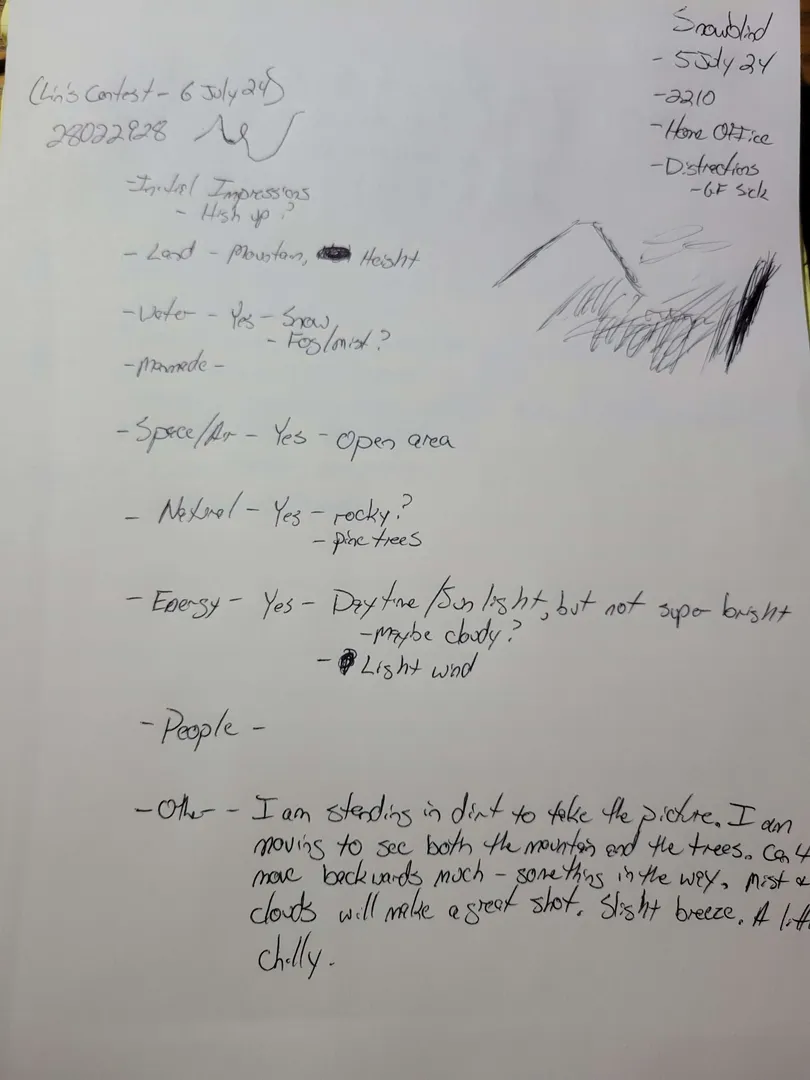 Snowblind
- 5 July 24
- 2210
- Home Office
- Distractions
- GF Sick
(Lin's Contest - 6 July 24)
28022928
- Initial Impressions
- High up?
- Land - Mountain, Height
- Water - Yes - Snow
- Fog/mist?
- Manmade -
- Space/Air - Yes - Open area
- Natural - Yes - rocky?
- pine trees
- Energy - Yes - Daytime/Sun light, but not super bright
- Maybe cloudy?
- Light wind
- People -
- Other - I am standing in dirt to take the picture. I am
moving to see both the mountain and the trees. Can't
move backwards much - something in the way. Mist &
clouds will make a great shot. Slight breeze. A
chilly.